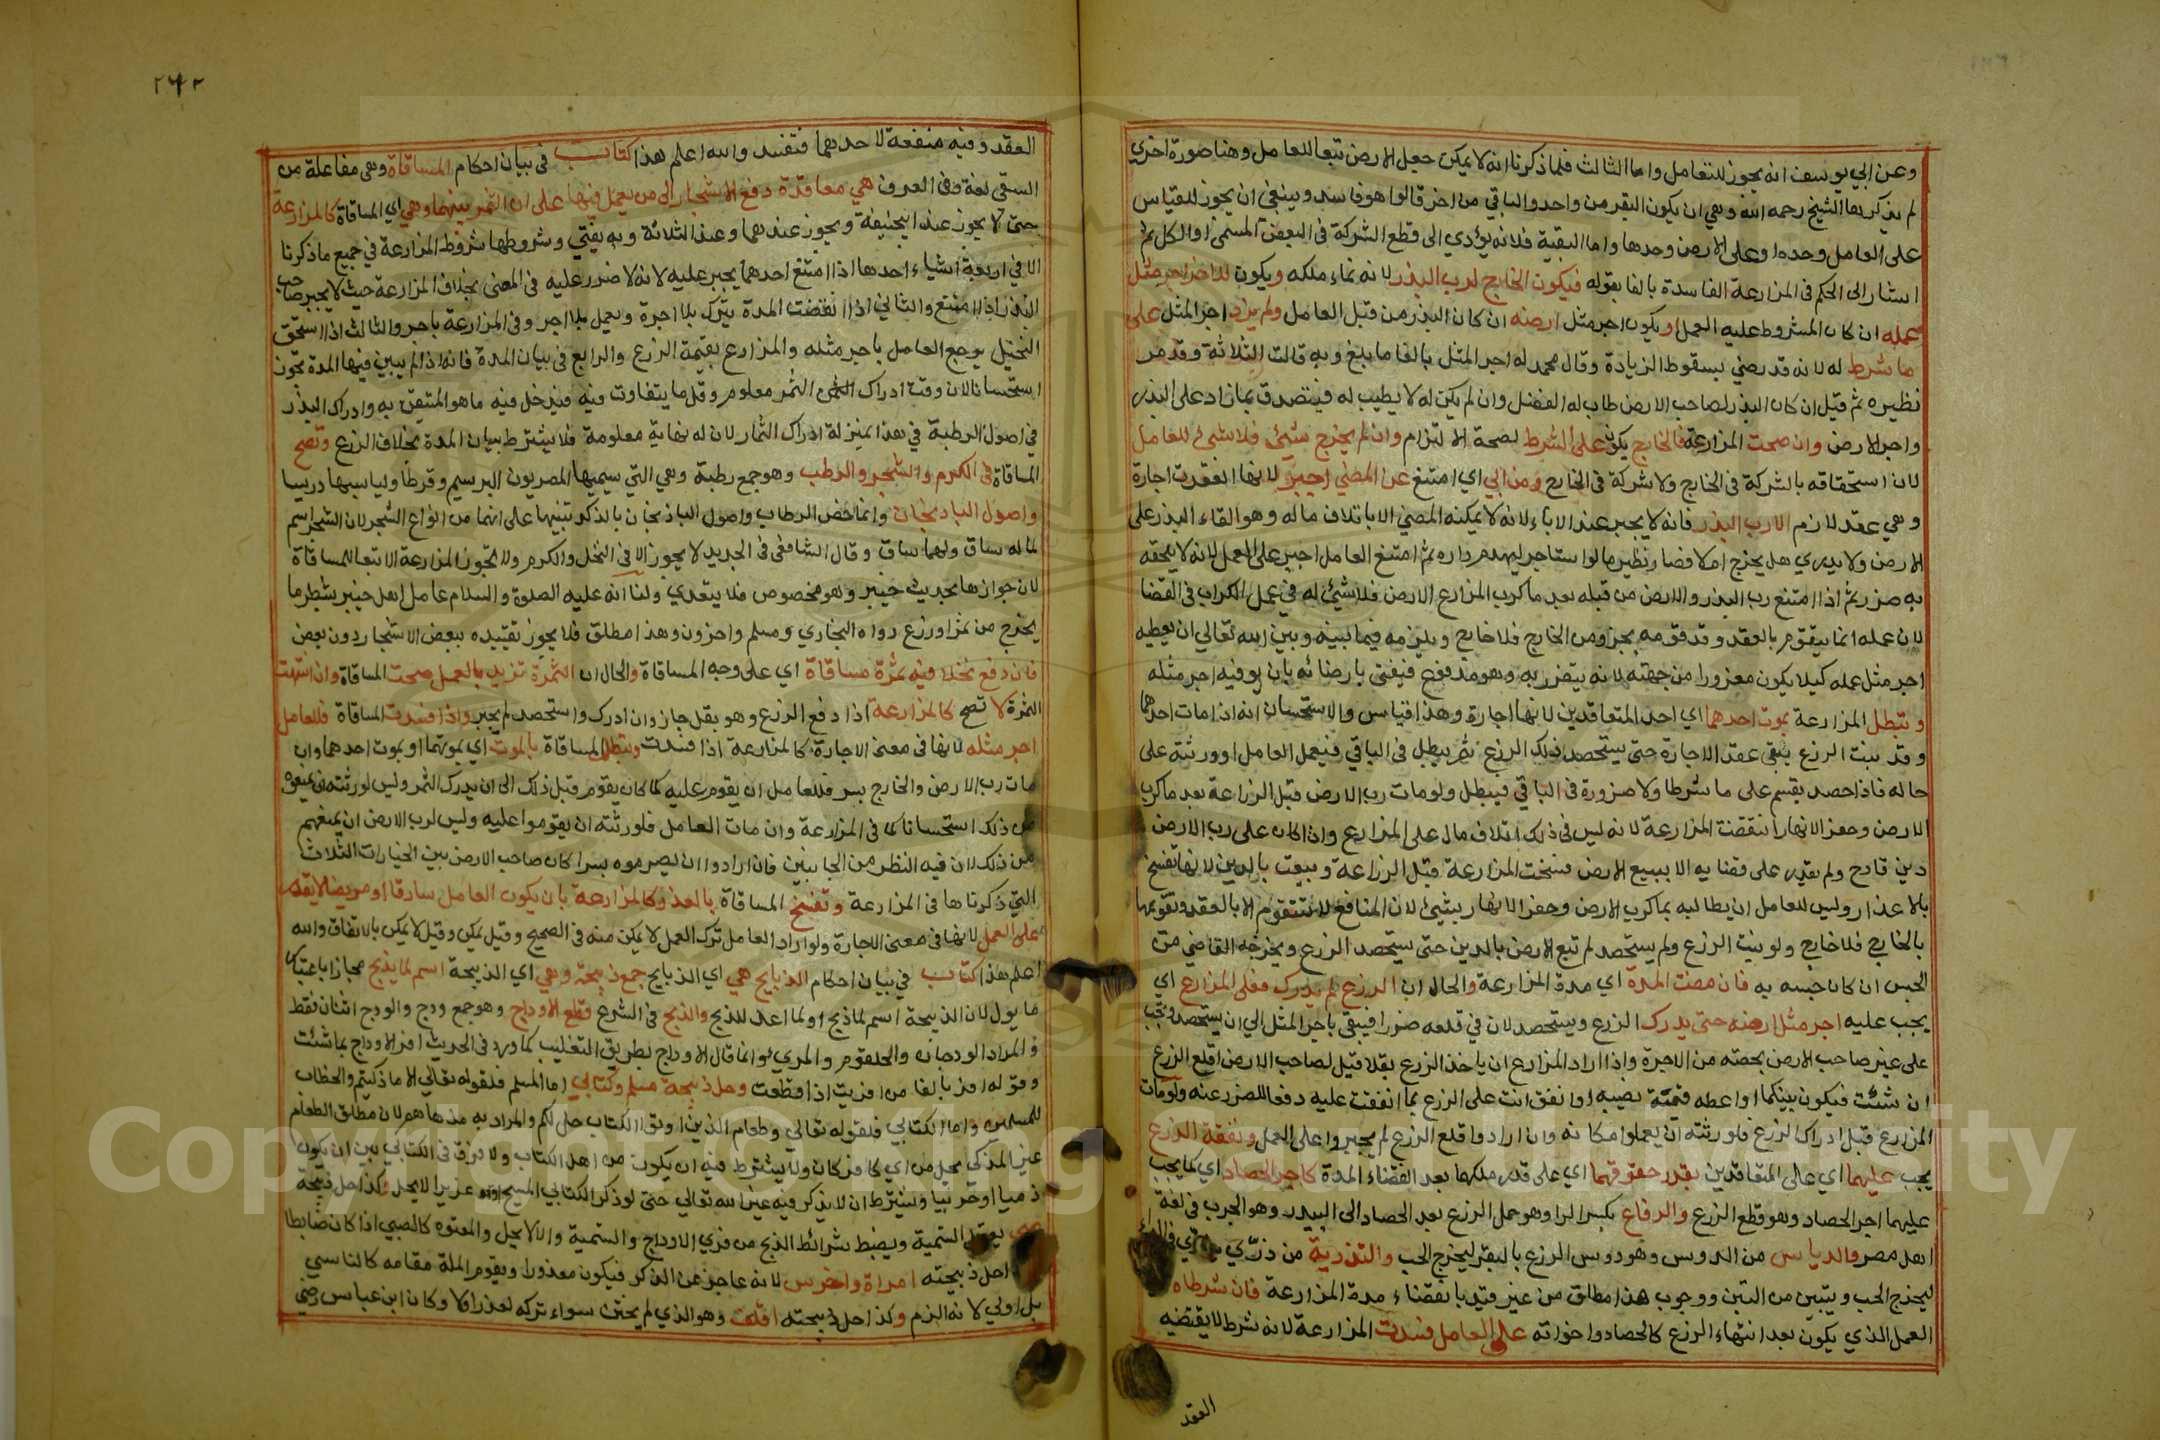 وعن ابي يوسف انه يجوز للتعامل واما الثالث فلما ذكرنا انه لا يمكن جعل الارض تبعا للعامل وهنا صورة اخري
لم يذكرها الشيخ رحمه الله وهي ان يكون البقر من واحد والباقي من اخر قالوا هو فاسد وينبغي ان يجوز للقياس
على العامل وحده او على الارض وحدها واما البقية فلانه يؤدي الى قطع الشركة في البعض المسمى او الكل ثم
اشار الى الحكم في المزارعة الفاسدة بالفا بقوله فيكون الخارج لرب البذر لانه نماء ملكه ويكون للاخر اجر مثل
عمله ان كان المشروط عليه العمل او يكون اجر مثل ارضه ان كان البذر من قبل العامل ولم يزاد اجر المثل على
ما شرط له لانه قد رضي بسقوط الزيادة وقال محمد له اجر المثل بالغا ما بلغ وبه قالت الثلاثة وقد مر
نظيره ثم قيل ان كان البذر لصاحب الارض طاب له الفضل وان لم يكن له لا يطيب له فيتصدق بما زاد على البذر
واجر الارض وان صحت المزارعة فالخارج يكون على الشرط لصحة الالتزام وان لم يخرج شيئ فلا شيئ للعامل
لان استحقاقه بالشركة في الخارج ولا شركة في الخارج ومن ابي اي امتنع عن المضي اجبر لانها انعقدت اجارة
وهي عقد لازم الا رب البذر فانه لا يجبر عند الاباء لانه لا يمكنه المضي الا باتلاف ماله وهو القاء البذر على
الارض ولا يدري هل يخرج ام لا فصار نظير ما لو استاجر ليهدم داره ثم امتنع العامل اجبر على العمل لانه لا يلحقه
به ضرر ثم اذا امتنع رب البذر والارض من قبله بعد ما كرب المزارع الارض فلا شيئ له في عمل الكراب في القضا
لان عمله انما يتقوم بالعقد وقد قومه بجزو من الخارج فلا خارج ويلزمه فيما بينه وبين الله تعالي ان يعطيه
اجر مثل عمله كيلا يكون مغرورا من جهته لانه يتضرر به وهو مدفوع فيفتى بارضائه بان يوفيه اجر مثله
وتبطل المزارعة بموت احدهما اي احد المتعاقدين لانها اجارة وهذا قياس والاستحسان انه اذا مات احدهما
وقد نبت الزرع يبقى عقد الاجارة حتى يستحصد ذلك الزرع ثم يبطل في الباقي فيعمل العامل او ورثته على
حاله فاذا حصد يقسم على ما شرطا ولا ضرورة في الباقي فيبطل ولو مات رب الارض قبل الزراعة بعد ما كرب
الارض وحفر الانهار انتقضت المزارعة لانه ليس في ذلك اتلاف مال على المزارع واذا كان على رب الارض
دين فادح ولم يقدر على قضايه الا ببيع الارض فسخت المزارعة قبل الزراعة وبيعت بالدين لانها تفسخ
بالاعذار وليس للعامل ان يطالبه بما كرب الارض وحفر الانهار بشيئ لان المنافع لا تتقوم الا بالعقد وتقويمها
بالخارج فلا خارج ولو نبت الزرع ولم يستحصد لم تبع الارض بالدين حتى يستحصد الزرع ويخرجه القاضي من
الحبس ان كان حبسه به فان مضت المدة اي مدة المزارعة والحال ان الزرع لم يدرك فعلى المزارع اي
يجب عليه اجر مثل ارضه حتى يدرك الزرع ويستحصد لان في قلعه ضررا فيبقى باجر المثل الي ان يستحصد ويجب
على غير صاحب الارض بحصته من الاجرة واذا اراد المزارع ان ياخذ الزرع بقلا قيل لصاحب الارض اقلع الزرع
ان شئت فيكون بينكما او اعطه قيمة نصيبه او انفق انت على الزرع بما انفقت عليه دفعا للضرر عنه ولو مات
المزارع قبل ادراك الزرع فلورثته ان يعملوا مكانه وان ارادوا قلع الزرع لم يجبروا على العمل ونفقة الزرع
يجب عليهما اي على المتعاقدين بقدر حقوقهما اي على قدر ملكهما بعد انقضاء المدة كاجر الحصاد اي كما يجب
عليهما اجر الحصاد وهو قطع الزرع والرفاع بكسر الرا وهو حمل الزرع بعد الحصاد الى البيدر وهو الجرن في لغة
اهل مصر والدياس من الدوس وهو دوس الزرع بالبقر ليخرج الحب والتذرية من ذري
ليخرج الحب ويتبين من التبن ووجوب هذا مطلق من غير قيد بانقضاء مدة المزارعة فان شرطاه
العمل الذي يكون بعد انتهاء الزرع كالحصاد واخواته على العامل فسدت المزارعة لانه شرط لا يقتضيه
العقد
٢٤٢
العقد وفيه منفعة لاحدهما فتفسد والله اعلم هذا كتاب في بيان احكام المساقاة وهي مفاعلة من
السقي لغة وفي العرف هي معاقدة دفع الاشجار الى من يعمل فيها على ان الثمر بينهما وهي اي المساقاة كالمزارعة
حتى لا يجوز عند ابيحنيفة ويجوز عندهما وعند الثلاثة وبه يفتي وشروطها شروط المزارعة في جميع ما ذكرنا
الا في اربعة اشياء احدها اذا امتنع احدهما يجبر عليه لانه لا ضرر عليه في المضي بخلاف المزارعة حيث لا يجبر صاحب
البذر اذا امتنع والثاني اذا انقضت المدة يترك بلا اجرة ويعمل بلا اجر وفي المزارعة باجر والثالث اذا استحق
النخيل يرجع العامل باجر مثله والمزارع بقيمة الزرع والرابع في بيان المدة فانه اذا لم يبين فيها المدة تجوز
استحسانا لان وقت ادراك الثمر معلوم وقل ما يتفاوت فيه فيدخل فيه ما هو المتيقن به وادراك البذر
في اصول الرطبة في هذا بمنزلة ادراك الثمار لان له نهاية معلومة فلا يشترط بيان المدة بخلاف الزرع وتصح
المساقاة في الكرم والشجر والرطب وهو جمع رطبة وهي التي سيميها المصريون البرسيم وقرطا ولباسها دريسا
واصول الباذنجان وانما خص الرطاب واصول الباذنجان بالذكر تنبيها على انهما من انواع الشجر لان الشجر اسم
لما له ساق ولهما ساق وقال الشافعي في الجديد لا يجوز الا في النخل والكرم ولا تجوز المزارعة الا تبعا للمساقاة
لان جوازها بحديث خيبر وهو مخصوص فلا يتعدي ولنا انه عليه الصلوة والسلام عامل اهل خيبر شطر ما
يخرج من ثمر او زرع رواه البخاري ومسلم واخرون وهذا مطلق فلا يجوز تقييده ببعض الاشجار دون بعض
فان دفع نخلا فيه ثمرة مساقاة اي على وجه المساقاة والحال ان الثمرة تزيد بالعمل صحت المساقاة وان انتهت
الثمرة لا تصح كالمزارعة اذا دفع الزرع وهو بقل جاز وان ادرك واستحصد لم يجز واذا فسدت المساقاة فللعامل
اجر مثله لانها في معنى الاجارة كالمزارعة اذا فسدت وتبطل المساقاة بالموت اي بموتهما او بموت احدهما وان
مات رب الارض والخارج بسر فللعامل ان يقوم عليه كما كان يقوم قبل ذلك الى ان يدرك الثمر وليس لورثته ان يمنعوه
من ذلك استحسانا كما في المزارعة وان مات العامل فلورثته ان يقوموا عليه وليس لرب الارض ان يمنعهم
من ذلك لان فيه النظر من الجانبين فان ارادوا ان يصرموه بسرا كان صاحب الارض بين الخيارات الثلاث
التي ذكرناها في المزارعة وتفسخ المساقاة بالعذر كالمزارعة بان يكون العامل سارقا او مريضا لا يقدر
على العمل لانها في معنى الاجارة ولو اراد العامل ترك العمل لا يمكن منه في الصحيح وقيل يمكن وقيل لا يمكن بالاتفاق والله
اعلم هذا كتاب في بيان احكام الذبايح هي اي الذبايح جمع ذبيحة وهي اي الذبيحة اسم لما يذبح مجازا باعتبار
ما يول لان الذبيحة اسم لما ذبح او لما اعد للذبح والذبح في الشرع قطع الاوداج وهو جمع ودج والودج اثنان فقط
والمراد الودجان والحلقوم والمري وانما قال الاوداج بطريق التغليب كما ورد في الحديث افر الاوداج بما شئت
وقوله افر بالفا من افريت اذا قطعت وحل ذبيحة مسلم وكتابي اما المسلم فلقوله تعالي الا ما ذكيتم والخطاب
للمسلمين واما الكتابي فلقوله تعالي وطعام الذين اوتوا الكتاب حل لكم والمراد به مذكاهم لان مطلق الطعام
غير المذكى يحل من اي كافر كان ولا يشترط فيه ان يكون من اهل الكتاب ولا فرق في الكتابي بين ان يكون
ذميا او حربيا ويشترط ان لا يذكر فيه غير الله تعالي حتى لو ذكر الكتابي المسيح او عزيرا لا يحل وكذا حل ذبيحة
يعقل التسمية ويضبط شرائط الذبح من فري الاوداج والتسمية والا لا يحل والمعتوه كالصبي اذا كان ضابطا
حل ذبيحته امراة واخرس لانه عاجز عن الذكر فيكون معذورا ويقوم الملة مقامه كالناسي
بل اولي لانه الزم وكذا حل ذبيحته اقلف وهو الذي لم يختن سواء تركه لعذر او لا وكان ابن عباس رضي